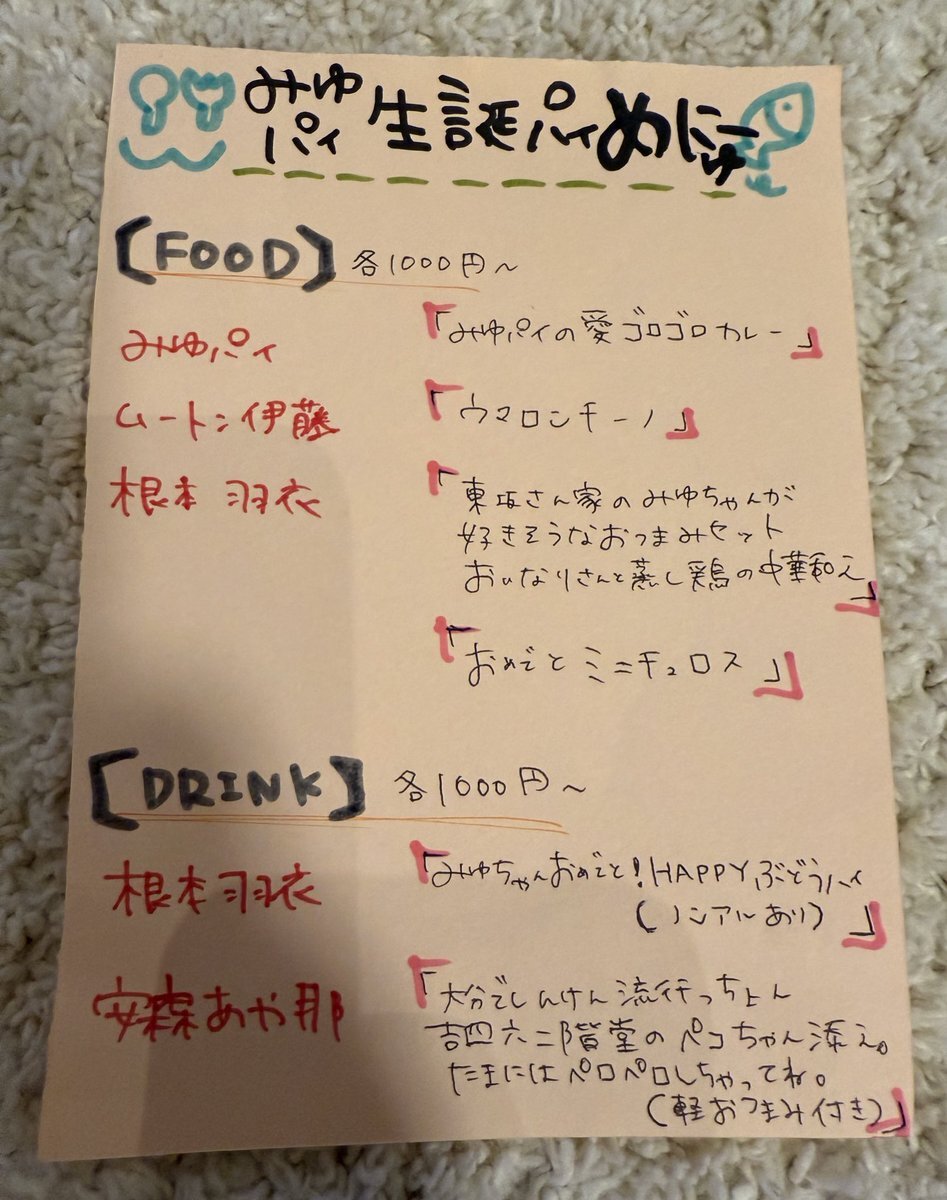 みゆパイ 生誕パイめにゅー
【FOOD】 各1000円～
みゆパイ 「みゆパイの愛ゴロゴロカレー」
ムートン伊藤 「ウマロンチーノ」
根本 羽衣 「東坂さん家のみゆちゃんが
好きそうなおつまみセット
おいなりさんと蒸し鶏の中華和え」
「おめでとミニチュロス」
【DRINK】 各1000円～
根本羽衣 「みゆちゃんおめでと!HAPPYぶどうハイ
(ノンアルあり)」
安森あや那 「大分でしんけん流行っちょん
吉四六二階堂のペコちゃん添え。
たまにはペロペロしちゃってね。
(軽おつまみ付き)」